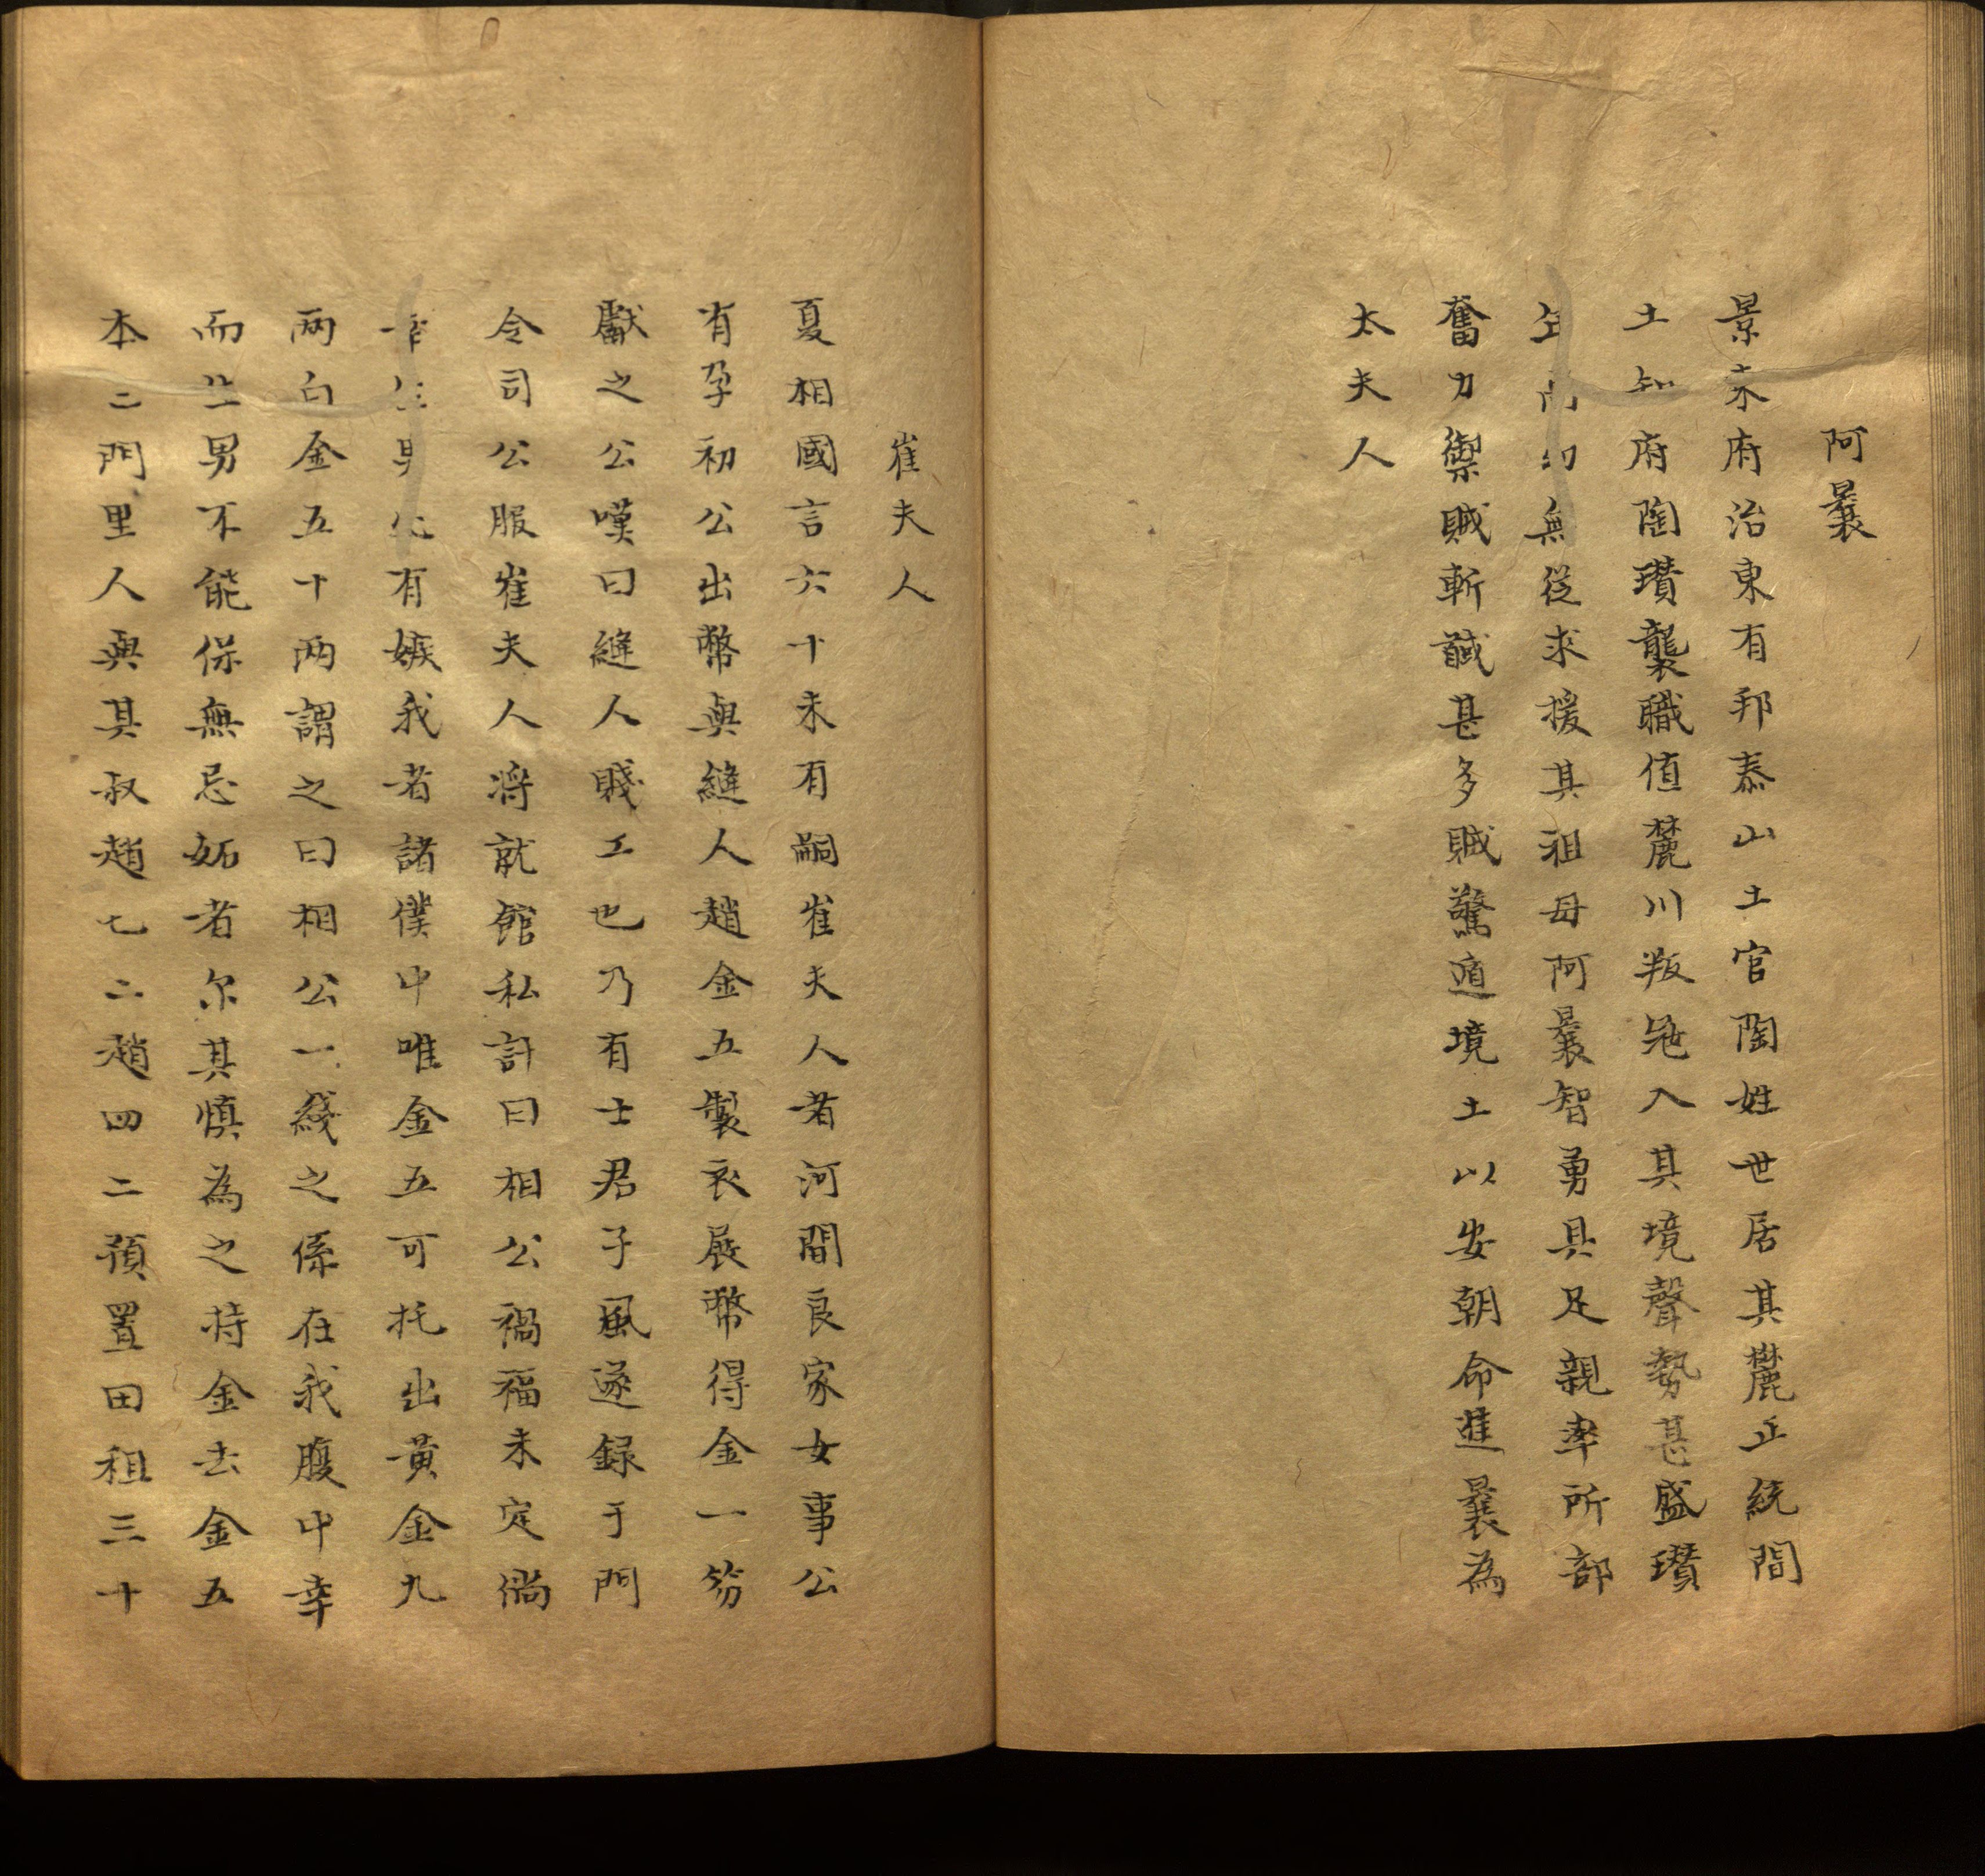 阿曩
景東府治東有邦泰山土官陶姓世居其麓正統間
土知府陶瓚襲職值麓川叛冦入其境聲勢甚盛瓚
年尚幼無從求援其祖母阿曩智勇具足親率所部
奮力禦賊斬馘甚多賊驚遁境土以安朝命進曩為
太夫人
崔夫人
夏相國言六十未有嗣崔夫人者河間良家女事公
有孕初公出幣與縫人趙金五製衣展幣得金一笏
獻之公嘆曰縫人賤工也乃有士君子風遂録于門
令司公服崔夫人將就館私計曰相公禍福未定倘
幸生男必有嫉我者諸僕中唯金五可托出黃金九
兩白金五十两謂之曰相公一綫之係在我腹中幸
而生男不能保無忌妬者尔其慎為之持金去金五
本二門里人與其叔趙七二趙四二預置田租三十